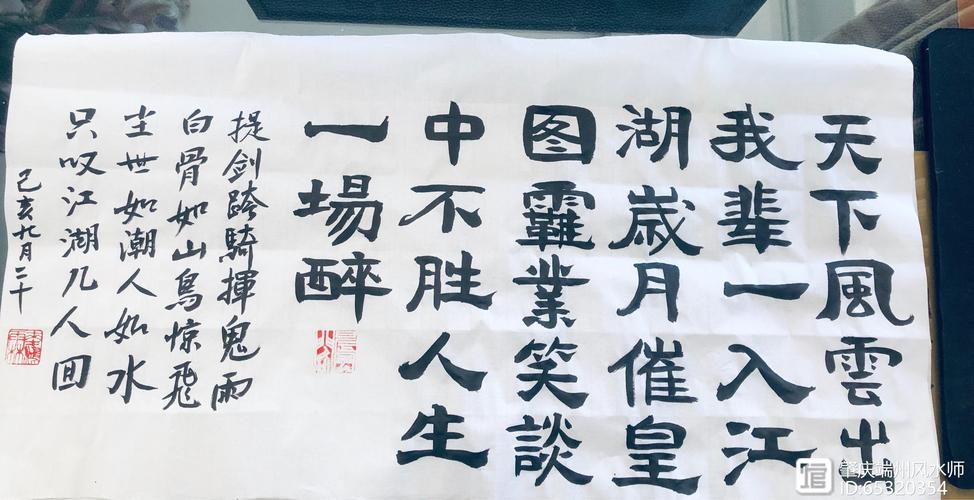 天下風雲出
我輩一入江
湖歲月催皇
图霸業笑談
中不胜人生
一場醉
提劍跨騎揮鬼雨
白骨如山鳥惊飛
尘世如潮人如水
只叹江湖几人回
己亥九月二十
肇庆端州风水师
ID:65320354